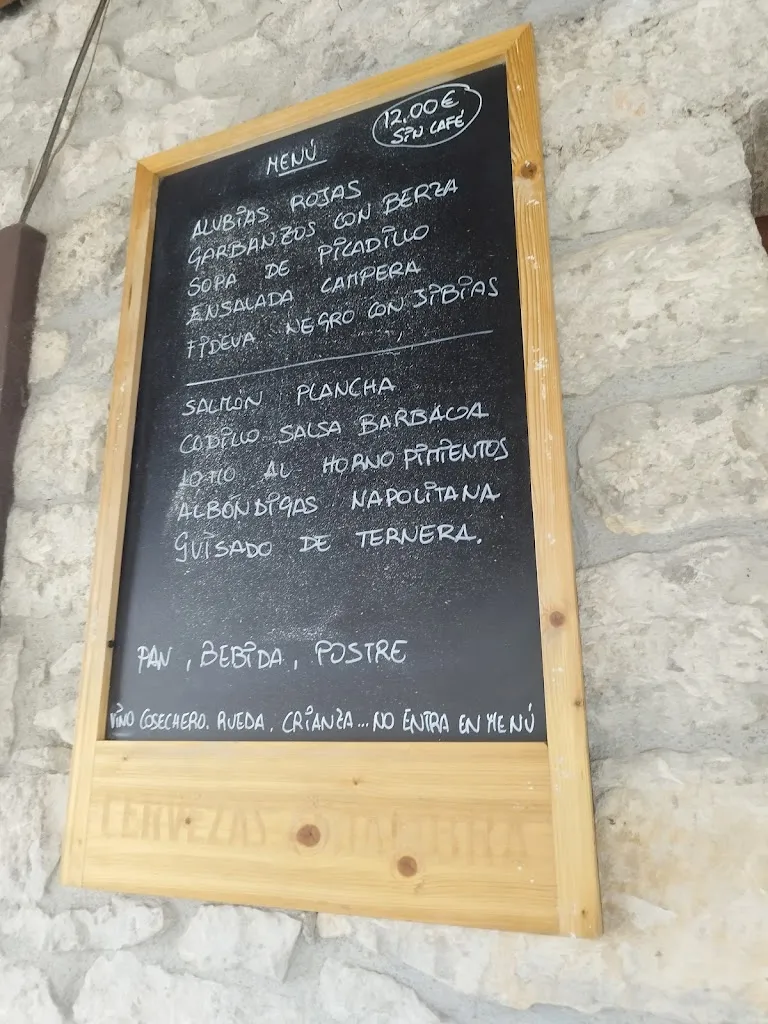 12.00€
SIN CAFÉ
MENÚ
ALUBIAS ROJAS
GARBANZOS CON BERZA
SOPA DE PICADILLO
ENSALADA CAMPERA
FIDEUA NEGRO CON JIBIAS
SALMÓN PLANCHA
CODILLO SALSA BARBACOA
LOMO AL HORNO PIMIENTOS
ALBÓNDIGAS NAPOLITANA
GUISADO DE TERNERA.
PAN, BEBIDA, POSTRE
VINO COSECHERO. RUEDA, CRIANZA...NO ENTRA EN MENÚ
CERVEZAS